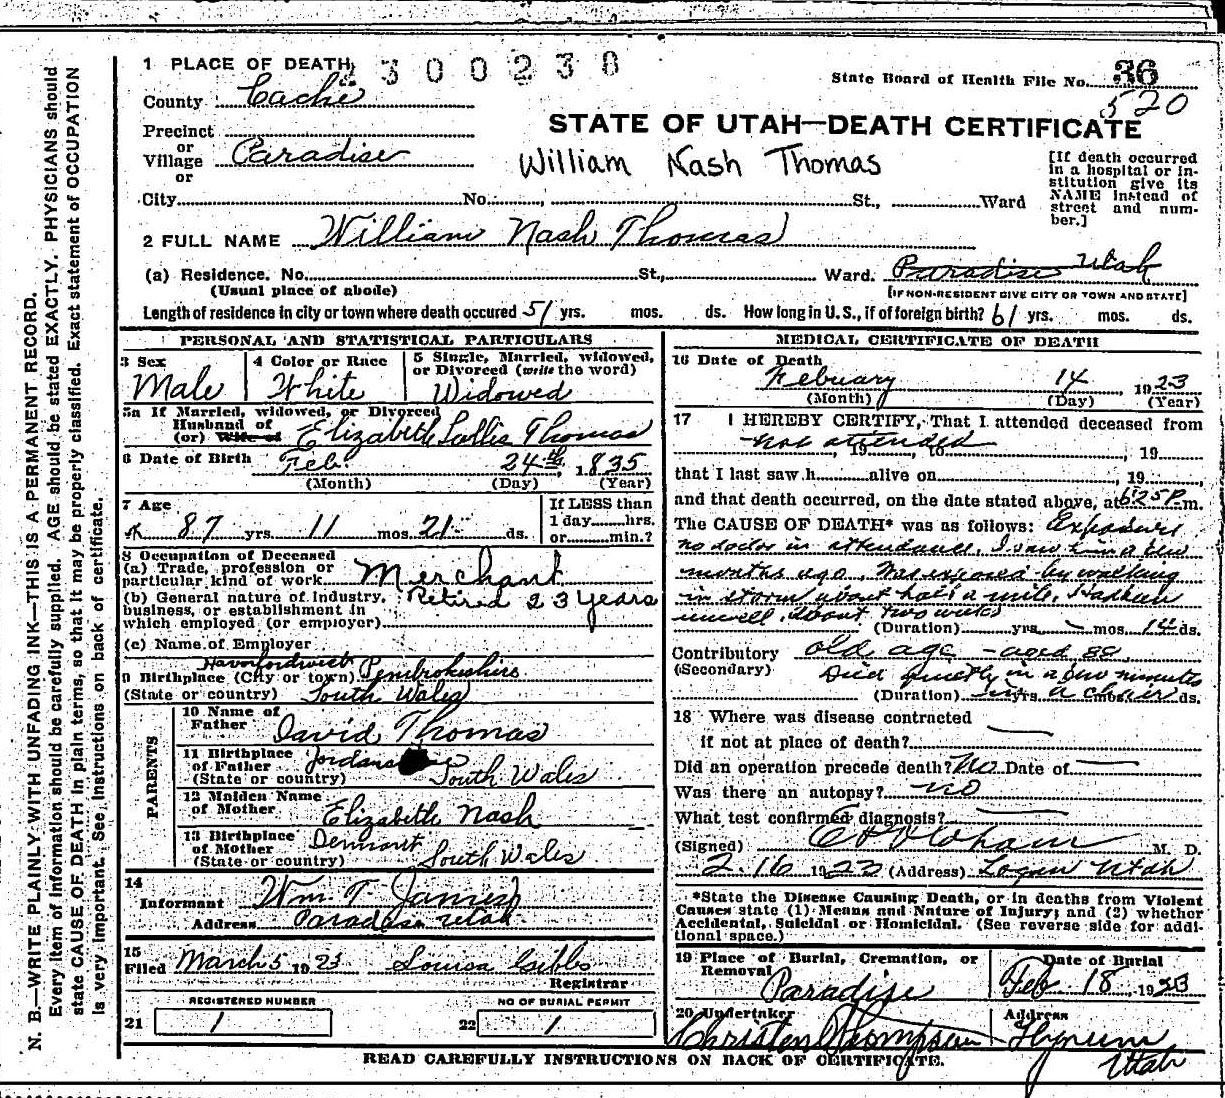 1 PLACE OF DEATH 2300230
State Board of Health File No. 36
County Cache
520
STATE OF UTAH—DEATH CERTIFICATE
Precinct
or
Village Paradise
or
William Nash Thomas
[If death occurred
in a hospital or in-
stitution give its
NAME instead of
street and num-
ber.]
City No. , St., Ward
2 FULL NAME William Nash Thomas
(a) Residence. No. St., Ward. Paradise Utah
(Usual place of abode)
[IF NON-RESIDENT GIVE CITY OR TOWN AND STATE]
Length of residence in city or town where death occured 51 yrs. mos. ds. How long in U. S., if of foreign birth? 61 yrs. mos. ds.
PERSONAL AND STATISTICAL PARTICULARS
3 Sex
Male
4 Color or Race
White
5 Single, Married, widowed,
or Divorced (write the word)
Widowed
5a If Married, widowed, or Divorced
Husband of
(or) Wife of Elizabeth Thomas
6 Date of Birth Feb. 24th, 1835
(Month) (Day) (Year)
7 Age
87 yrs 11 mos 21 ds.
If LESS than
1 day hrs.
or min.?
8 Occupation of Deceased
(a) Trade, profession or
particular kind of work Merchant
(b) General nature of industry, Retired 23 years
business, or establishment in
which employed (or employer)
(c) Name of Employer
Haverfordwest Pembrokeshire
9 Birthplace (City or town)
(State or country) South Wales
PARENTS
10 Name of
Father David Thomas
11 Birthplace
of Father
(State or country) South Wales
12 Maiden Name
of Mother Elizabeth Nash
13 Birthplace
of Mother
(State or country) South Wales
14
Informant Wm. T. James
Address Paradise Utah
15
Filed March 5 1923 Louisa Gibbs
Registrar
REGISTERED NUMBER
21 1
NO OF BURIAL PERMIT
22 1
MEDICAL CERTIFICATE OF DEATH
16 Date of Death
Febuary 14 1923
(Month) (Day) (Year)
17 I HEREBY CERTIFY, That I attended deceased from
not attended, 19 , to , 19
that I last saw h alive on , 19
and that death occurred, on the date stated above, at 6:25 P. m.
The CAUSE OF DEATH* was as follows: Exposure
no doctor in attendance. I saw him a few
months ago. Was exposed by walking
in storm about half a mile. Had been
unwell about two weeks
(Duration) yrs mos 14 ds.
Contributory old age - aged 88
(Secondary) Died quietly in a few minutes
(Duration) in a chair ds.
18 Where was disease contracted
if not at place of death?
Did an operation precede death? No Date of
Was there an autopsy? no
What test confirmed diagnosis?
(Signed) M. D.
2.16 1923 (Address) Logan Utah
*State the Disease Causing Death, or in deaths from Violent
Causes state (1) Means and Nature of Injury; and (2) whether
Accidental, Suicidal or Homicidal. (See reverse side for addi-
tional space.)
19 Place of Burial, Cremation, or
Removal
Paradise
Date of Burial
Feb 18, 1923
20 Undertaker
Christen Thompson
Address
Hyrum
Utah
READ CAREFULLY INSTRUCTIONS ON BACK OF CERTIFICATE.
N. B.—WRITE PLAINLY WITH UNFADING INK—THIS IS A PERMANENT RECORD.
Every item of information should be carefully supplied. AGE should be stated EXACTLY. PHYSICIANS should
state CAUSE OF DEATH in plain terms, so that it may be properly classified. Exact statement of OCCUPATION
is very important. See instructions on back of certificate.